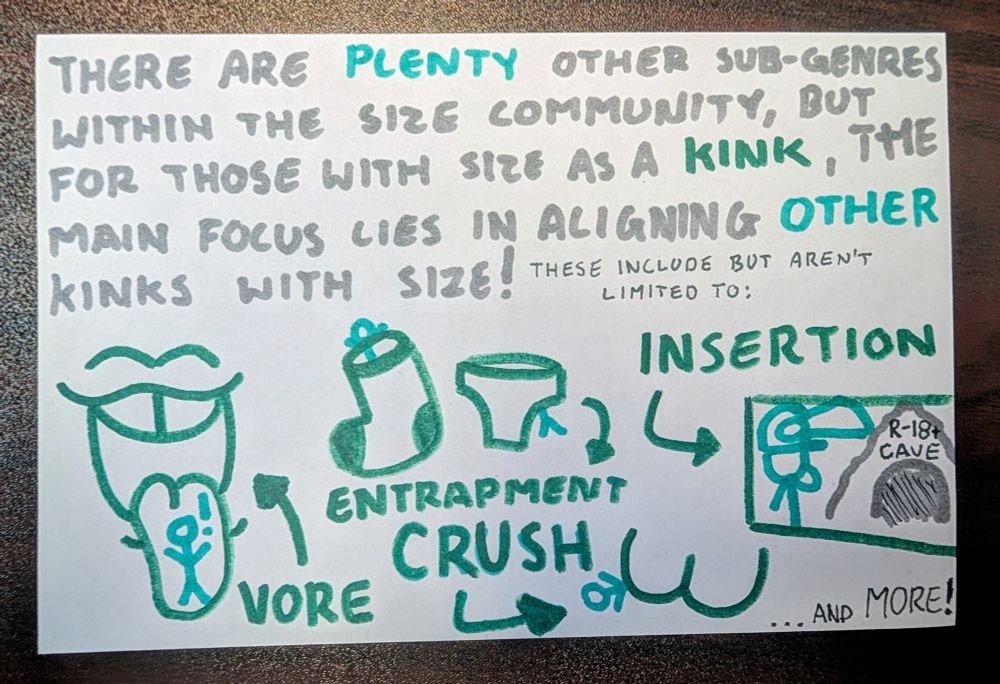 THERE ARE PLENTY OTHER SUB-GENRES
WITHIN THE SIZE COMMUNITY, BUT
FOR THOSE WITH SIZE AS A KINK, THE
MAIN FOCUS LIES IN ALIGNING OTHER
KINKS WITH SIZE! THESE INCLUDE BUT AREN'T
LIMITED TO:
INSERTION
R-18+
CAVE
ENTRAPMENT
CRUSH
VORE
!
...AND MORE!